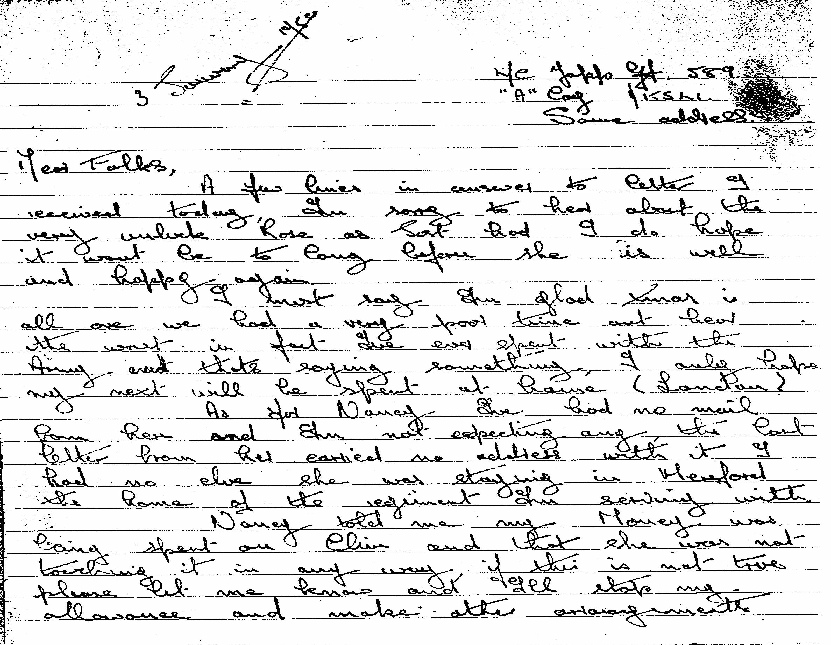 3 January
L/C Japp Gjt. 559
"A" Coy 1 KSLI.
Same address.
Dear Folks,
A few lines in answer to letter I
received today, Im sorry to hear about the
very unlucke Rose as had I do hope
it wont be to long before she is well
and happy again
I must say Im glad Xmas is
all ove we had a very poor time out hear
the worst in fact Ive ever spent with the
Army and thats saying something, I only hope
my next will be spent at home (London)
As for Nancy Ive had no mail
from her and Im not expecting any the last
letter from her carried no address with it I
had no clue she was staying in Hereford
the home of the regiment Im serving with
Nancy told me my Money was
being spent on Clive and that she was not
touching it in any way if this is not true
please let me know and I'll stop my
allowance and make other arrangements